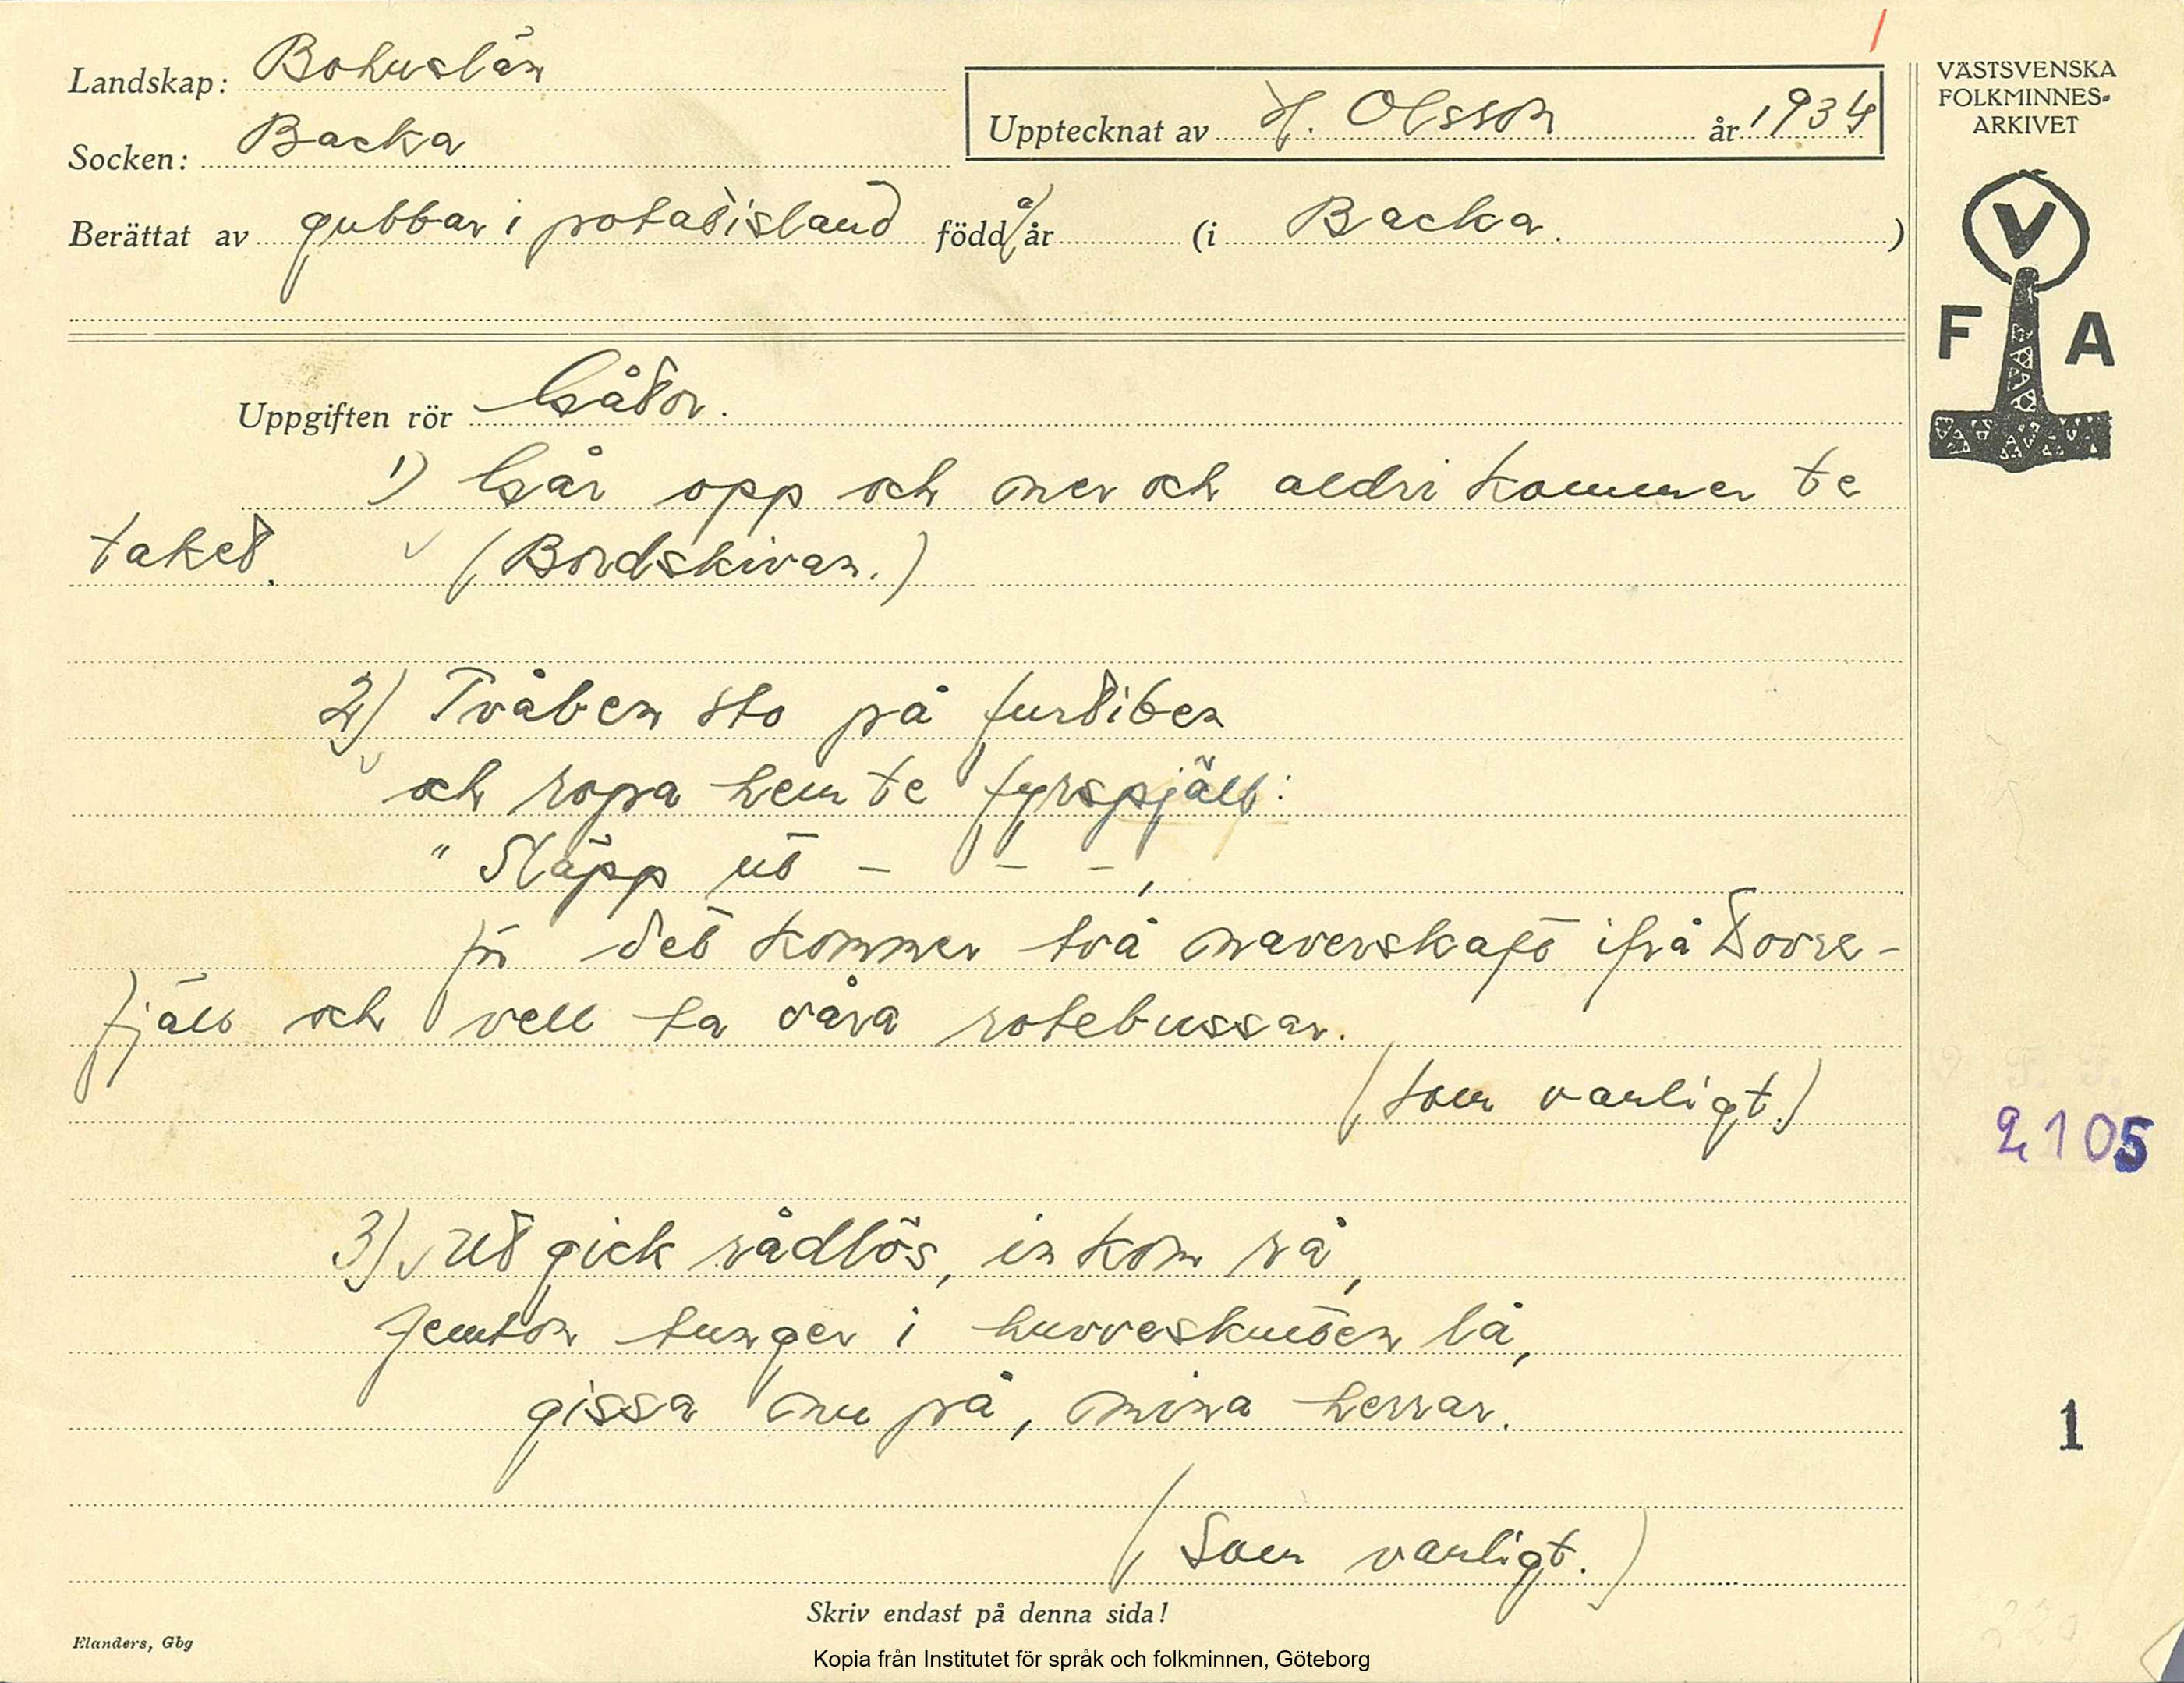 Landskap: Bohuslän
Socken: Backa
Upptecknat av H. Olsson år 1934
Berättat av gubbar i potatisland födda år (i Backa.)
VÄSTSVENSKA
FOLKMINNES-
ARKIVET
V
F A
Uppgiften rör Gåtor.
1) Går opp och ner och aldri kommer te
taket. (Bordskivan.)
2) Tvåben sto på furtiben
och ropa hem te fyrspjält:
"Släpp ut – – –,
för det kommer två naverskaft ifrå Dovre-
fjäll och vell ta våra rotebussar.
(som vanligt.)
3) Ut gick rådlös, in kom rå,
femton tunger i huvveskuten lå,
gissa nu på, mina herrar.
(Som vanligt.)
2105
1
Skriv endast på denna sida!
Elanders, Gbg
Kopia från Institutet för språk och folkminnen, Göteborg